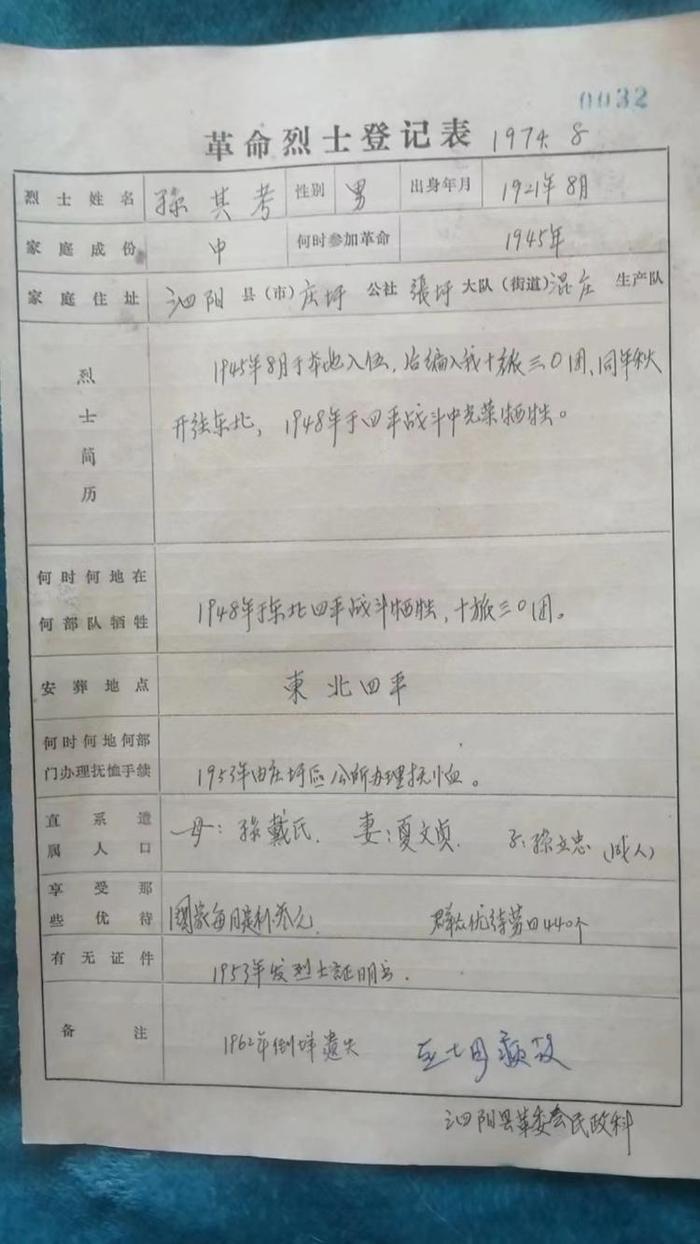 0032
革命烈士登记表 1974.8
烈士姓名 孫其考 性别 男 出身年月 1921年8月
家庭成份 中 何时参加革命 1945年
家庭住址 泗阳县(市)庄圩公社張圩大队(街道)混庄生产队
烈士简历
1945年8月于本地入伍,后编入我十旅三〇团、同年秋
开往东北,1948年于四平战斗中光荣牺牲。
何时何地在
何部队牺牲
1948年于东北四平战斗牺牲,十旅三〇团。
安葬地点 東北四平
何时何地何部
门办理抚恤手续
1953年由庄圩区公所办理抚恤。
直系遗
属人口
母:孫戴氏. 妻:夏文贞. 子:孫立忠(成人)
享受那
些优待
國家每月定补叁元. 群众优待劳日440个
有无证件 1953年发烈士証明书.
备注 1962年倒坍遗失
泗阳县革委会民政科